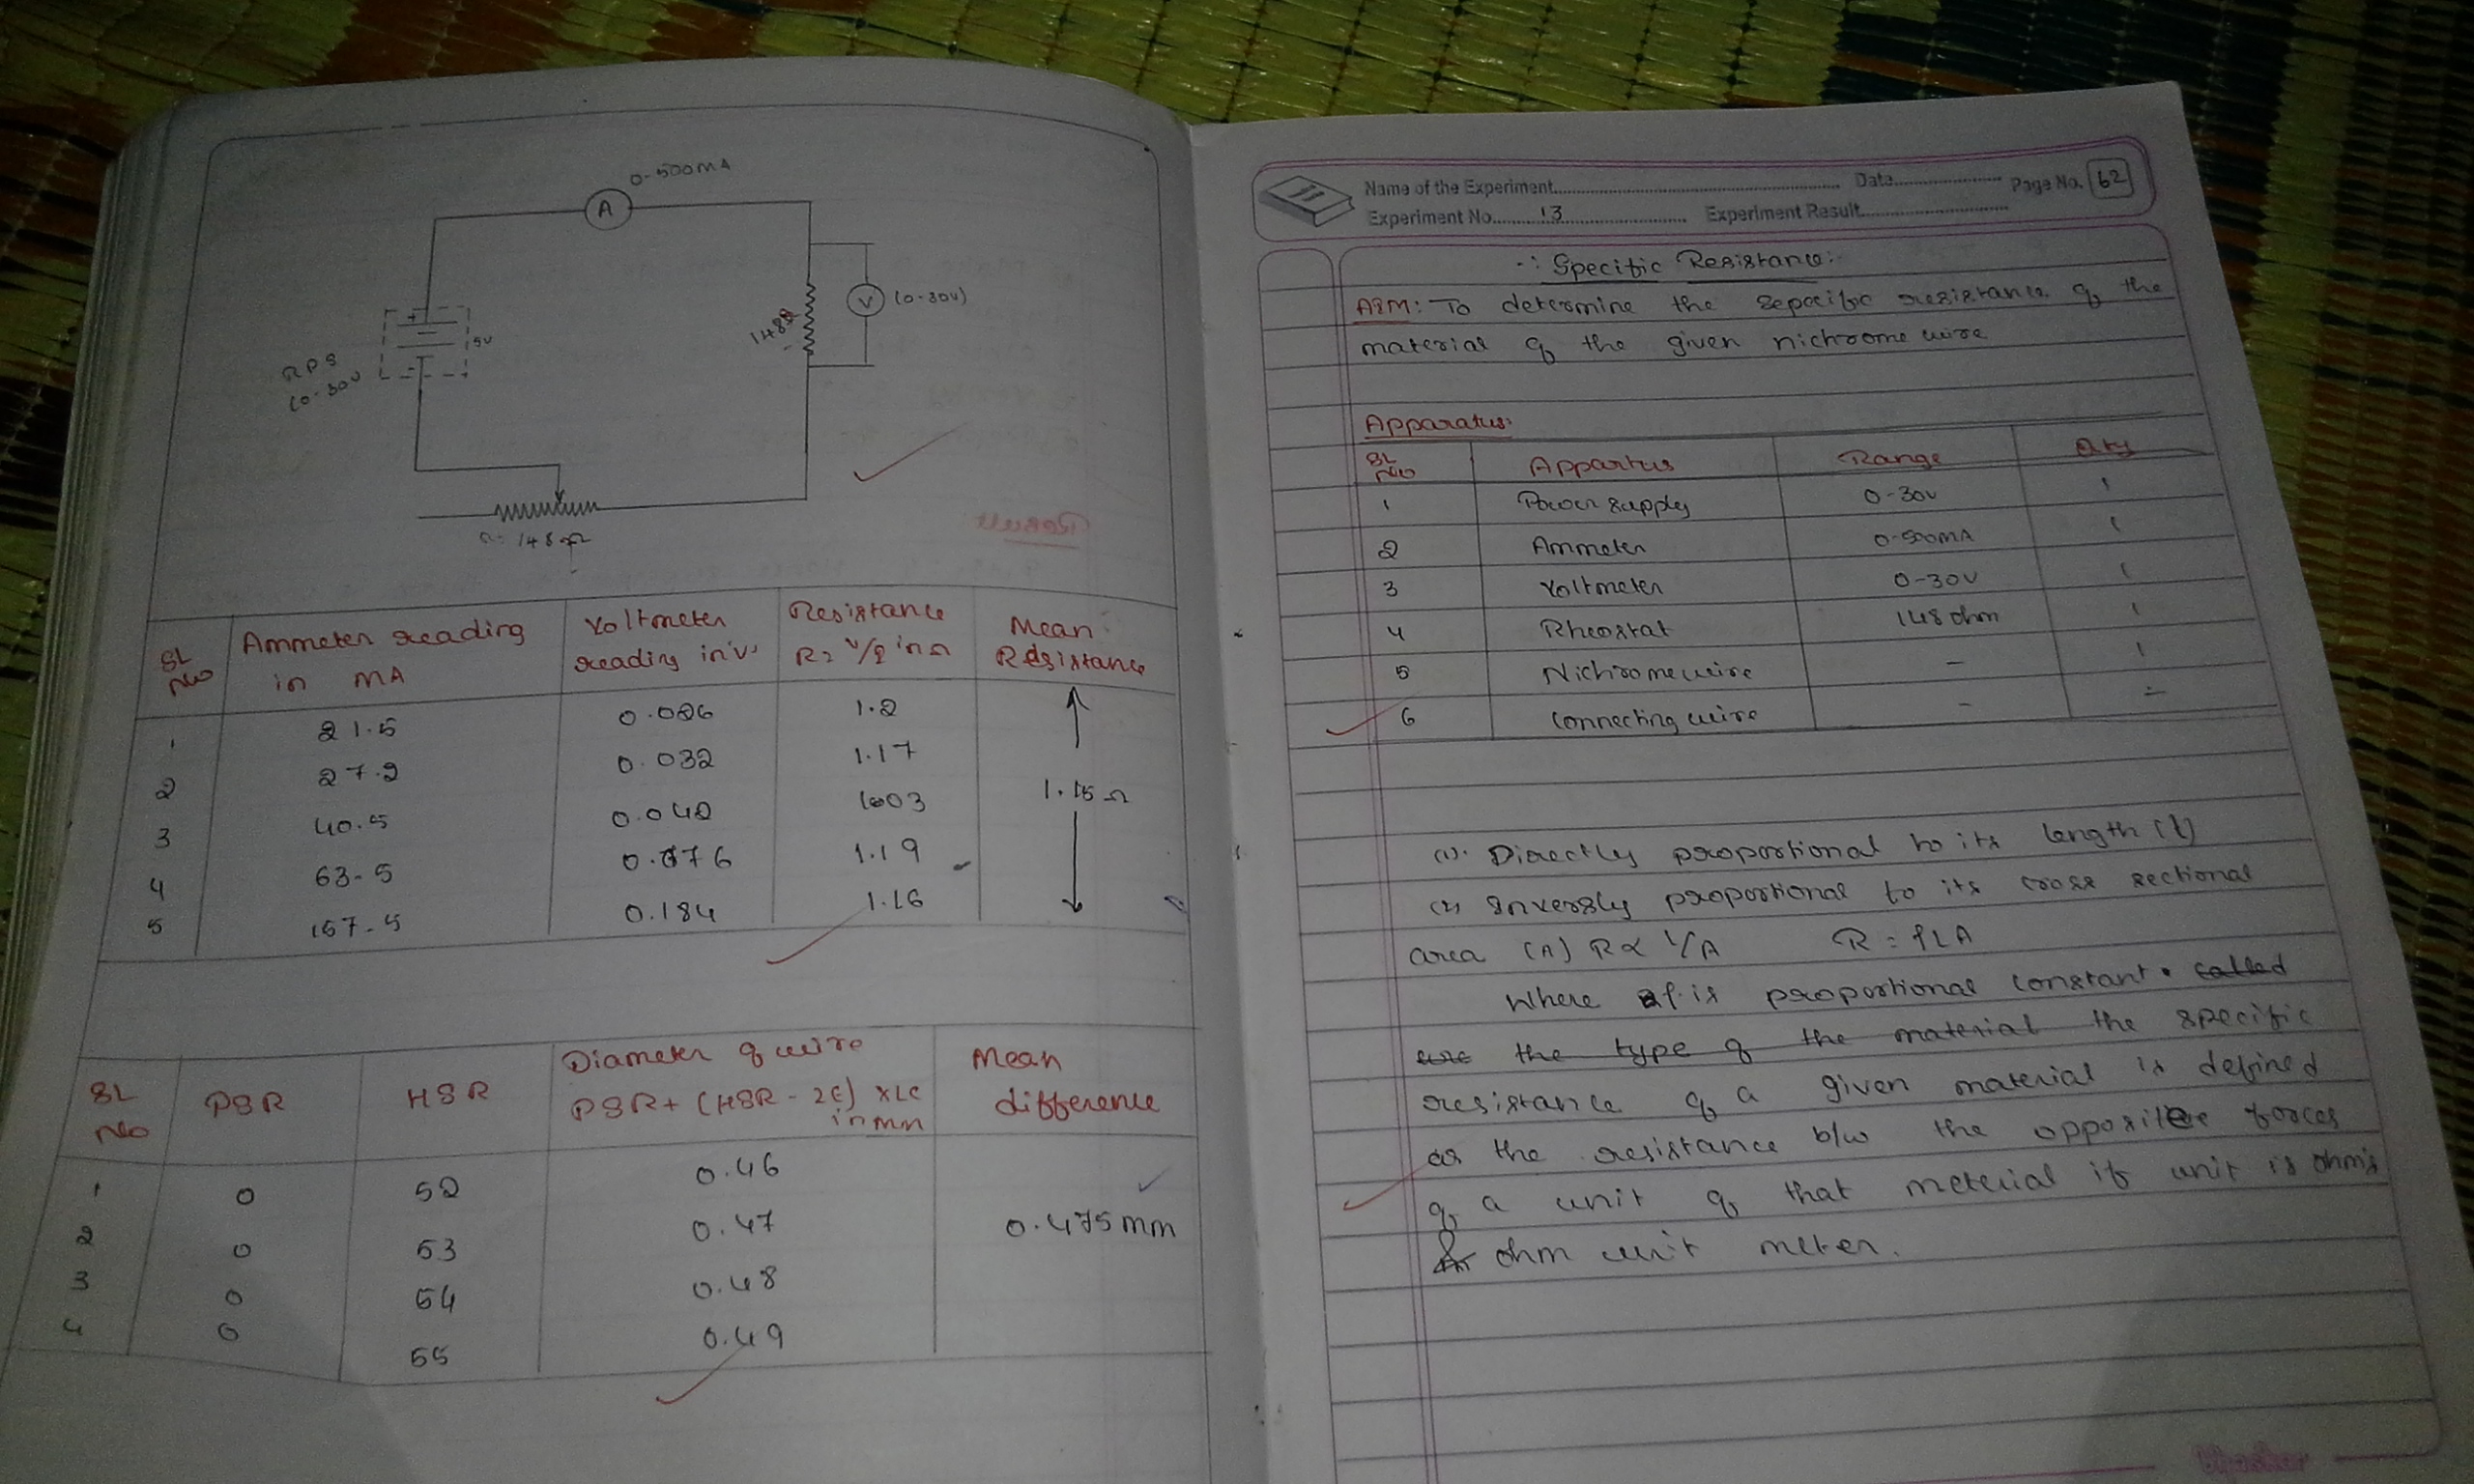 0-500mA
A
V
(0-30V)
148Ω
+
5V
RPS
(0-30V
148Ω
Result
SL No | Ammeter reading in mA | Voltmeter reading in 'V' | Resistance R= V/I in Ω | Mean Resistance
1 | 21.5 | 0.026 | 1.2
2 | 27.2 | 0.032 | 1.17
3 | 40.5 | 0.042 | 1.03 | 1.15Ω
4 | 63-5 | 0.076 | 1.19
5 | 157-5 | 0.184 | 1.16
SL No | PSR | HSR | Diameter of wire PSR+ (HSR - ZE) XLC in mm | Mean difference
1 | 0 | 52 | 0.46
2 | 0 | 53 | 0.47 | 0.475mm
3 | 0 | 54 | 0.48
4 | 0 | 55 | 0.49
Name of the Experiment Date Page No. 62
Experiment No. 13 Experiment Result
-: Specific Resistance:
AIM: To determine the sepecific resistance of the
material of the given nichrome wire
Apparatus:
SL No | Appartus | Range | Qty
1 | Power supply | 0-30V | 1
2 | Ammeter | 0-500mA | 1
3 | Voltmeter | 0-30V | 1
4 | Rheostat | 148 ohm | 1
5 | Nichrome wire | - | 1
6 | Connecting wire | - | -
(1). Directly proportional to its length (l)
(2) Inversly proportional to its cross sectional
area (A) R∝ 1/A R = ρLA
Where ρ is proportional constant. called
are the type of the material the specific
resistance of a given material is defined
as the resistance b/w the opposite forces
of a unit of that meterial its unit is ohm's
ohm unit meter.
bhaskar